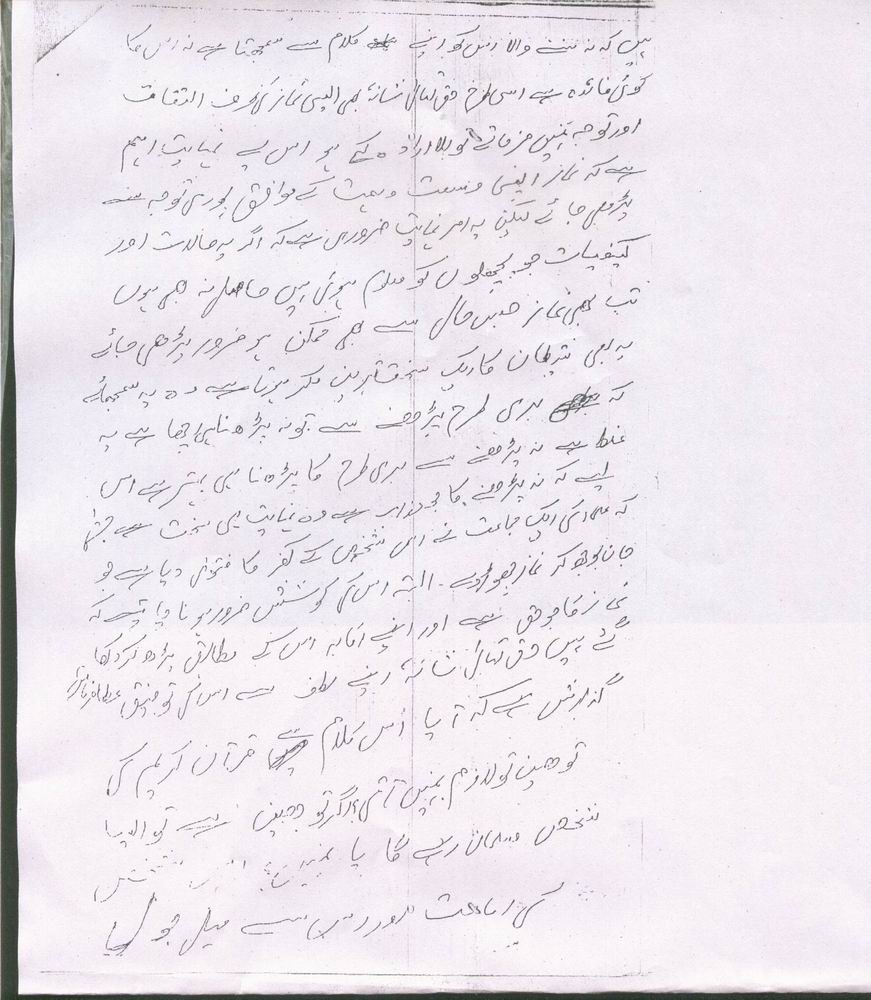 ہیں کہ نہ سننے والا اس کو اپنے کلام سے سمجھتا ہے نہ اس کا
کوئی فائدہ ہے اسی طرح حق تعالیٰ شانہٗ بھی ایسی نماز کی طرف التفات
اور توجہ نہیں فرماتے جو بلا ارادہ کے ہو اس لیے نہایت اہم
ہے کہ نماز اپنی وسعت و ہمت کے موافق پوری توجہ سے
پڑھی جائے لیکن یہ امر نہایت ضروری ہے کہ اگر یہ حالات اور
کیفیات جو پچھلوں کو معلوم ہوئی ہیں حاصل نہ بھی ہوں
تب بھی نماز جس حال سے بھی ممکن ہو ضرور پڑھی جائے
یہ بھی شیطان کا ایک سخت ترین مکر ہوتا ہے وہ یہ سمجھائے
کہ بری طرح پڑھنے سے تو نہ پڑھنا ہی اچھا ہے یہ
غلط ہے نہ پڑھنے سے بری طرح کا پڑھنا ہی بہتر ہے اس
لیے کہ نہ پڑھنے کا جو عذاب ہے وہ نہایت ہی سخت ہے حتیٰ
کہ علما کی ایک جماعت نے اس شخص کے کفر کا فتویٰ دیا ہے جو
جان بوجھ کر نماز چھوڑ دے۔ البتہ اس کی کوشش ضرور ہونا چاہئے کہ
نماز کا جو حق ہے اور اپنے اکابر اس کے مطابق پڑھ کر دکھا
گئے ہیں حق تعالیٰ شانہٗ اپنے لطف سے اس کی توفیق عطا فرمائیں
گذارش ہے کہ آیا اس کلام سے قرآن کریم کی
توھین تو لازم نہیں آتی اگر توھین ہے تو ایسا
شخص مسلمان رہے گا یا نہیں
کی امامت اور اس سے میل جول